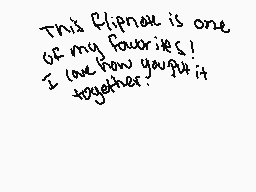 This flipnote is one
of my favorites!
I love how you put it
together.